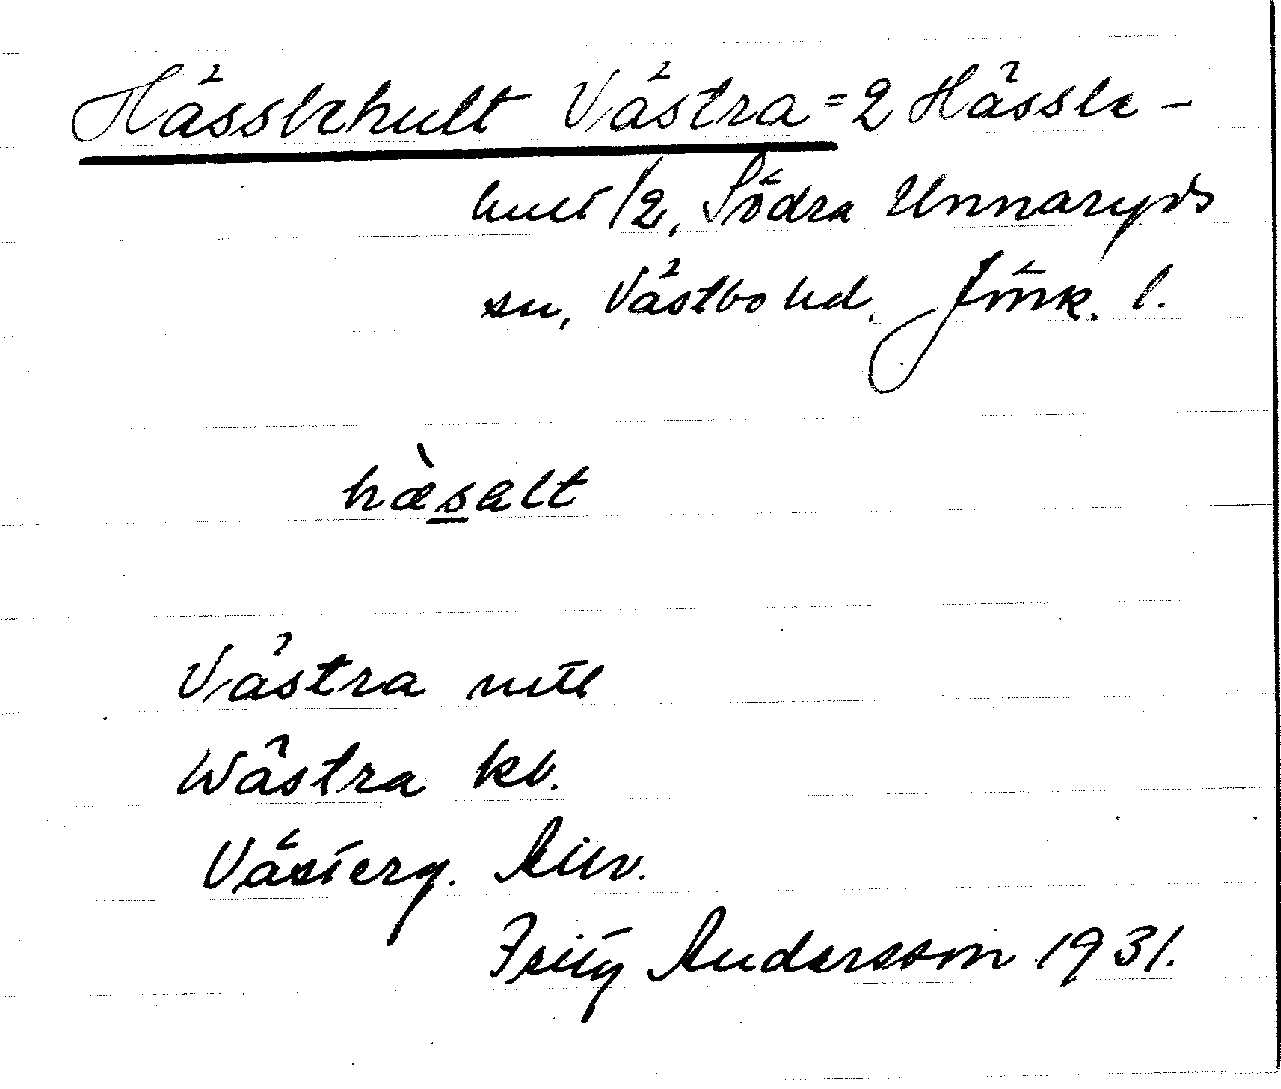 Hässlehult Västra = 2 Hässle-
hult 1/2, Södra Unnaryds
sn, Västbo hd. Jönk. l.
hæ̀salt
Västra
Wästra kb.
Västerg.
Fritz Andersson 1931.